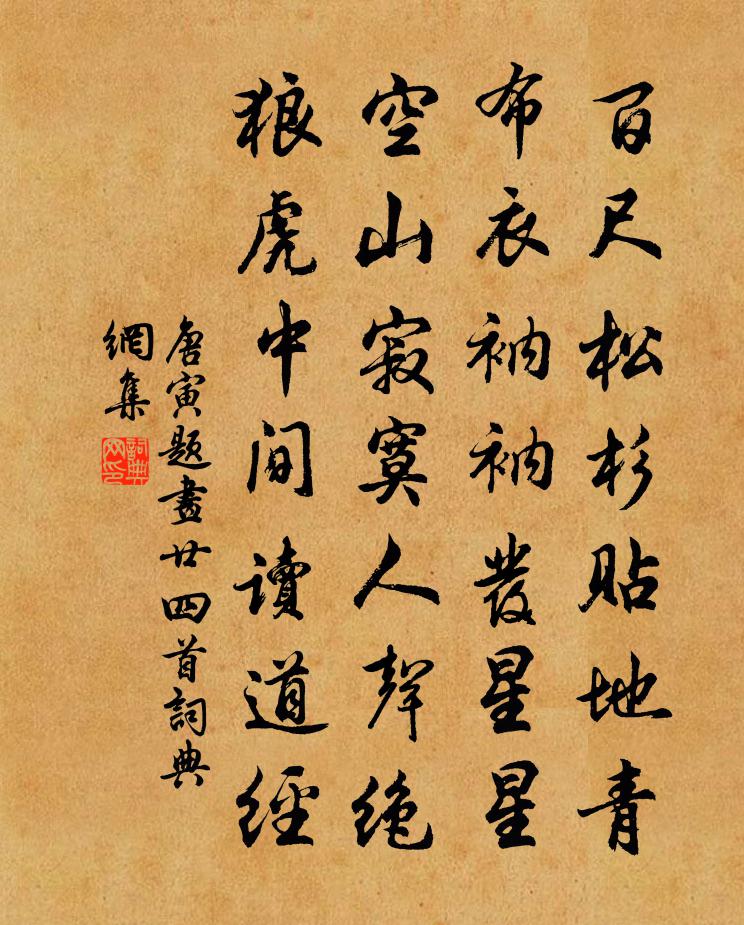 百尺松杉貼地青
布衣衲衲發星星
空山寂寞人聲絶
狼虎中間讀道經
唐寅題畫廿四首詞典
網集
詞典
網印